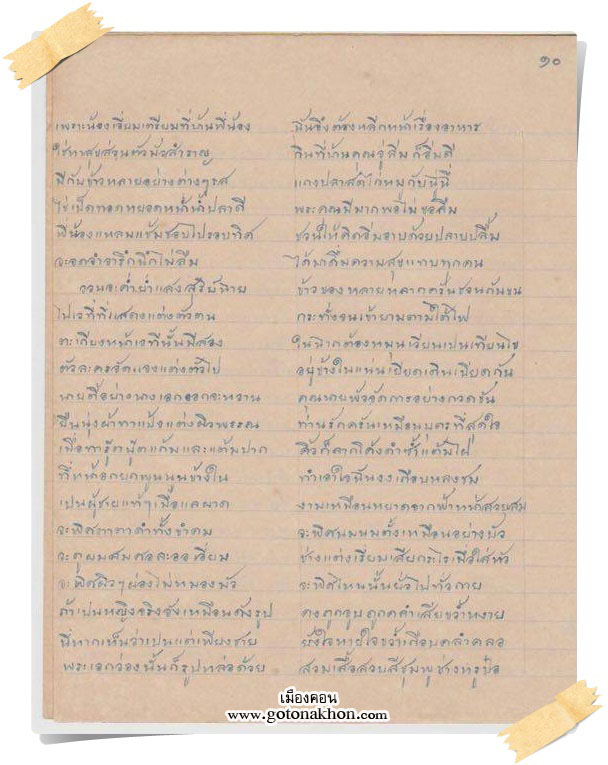 ๑๐
เพราะน้องเอี่ยมเตรียมที่บ้านพี่น้อง ฉันจึงต้องหลีกหน้าเรื่องอาหาร
ใช่หาสุขส่วนตัวมัวสำราญ กินที่บ้านคุณจู่ลิ่มก็อิ่มดี
มีกับข้าวหลายอย่างต่างๆรส แกงปลาสดไก่หมูกับบะหมี่
ไข่เป็ดทอดหยอดหน้าน้ำปลาดี พระคุณมีมากพอไม่ขอลืม
พี่น้องแหลมแช้มช้อยไปรอบทิศ ชวนให้คิดอิ่มอาบด้วยปลาบปลื้ม
จะจดจำจารึกนึกไม่ลืม ได้มาดื่มความสุขแทบทุกคน
จวนจะค่ำย่ำแสงสุริย์ฉาย ข้าวของหลายหลากครันชวนกันขน
ไปเวทีที่แสดงแต่งตัวตน กระทั่งจนเข้ายามตามใต้ไฟ
ตะเกียงหน้าเวทีนั้นมีสอง
ตัวละครจัดแจงแต่งตัวไป อยู่ข้างในแน่นเบียดเดินเบียดกัน
นายตี๋อย่างนางเอกออกจะหวาน คุณนายพัวจัดการอย่างกวดขัน
ยืนนุ่งผ้าทาแป้งแต่งผิวพรรณ ท่านรักครันเหมือนบุตรที่สุดใจ
เพื่อทารู้ดพู้ดแก้มและแต้มปาก คิ้วก็ลากโค้งดำซ้ำแต้มไฝ
ที่หน้าอกยกพูนนูนข้างใน ทำเอาใจฉันงงเสือบหลงชม
เป็นผู้ชายแท้ๆเมื่อแลผาด งามเหมือนหยาดจากฟ้าหน้าสวยสม
จะพิศตาตาดำทั้งขำคม จะพิศนมนมตั้งเหมือนอย่างบัว
จะดูผมสมศอละออเอี่ยม ช่างแต่งเรียมเสียกระไรเมื่อใส่หัว
จะพิศผิวๆผ่องไม่หมองมัว จะพิศไหนนั้นยั่วไปทั่วกาย
ถ้าเป็นหญิงจริงจังเหมือนดังรูป คงถูกจูบถูกคลำเสียขว้ำหงาย
นี่หากเห็นว่าเป็นแต่เพียงชาย ยังใจหายใจคว่ำเสือบคลำคลอ
พระเอกว่องนั้นก็รูปหล่อด้วย สวมเสื้อสวยสีชมพูช่างหรูป๋อ
เมืองคอน
www.gotonakhon.com